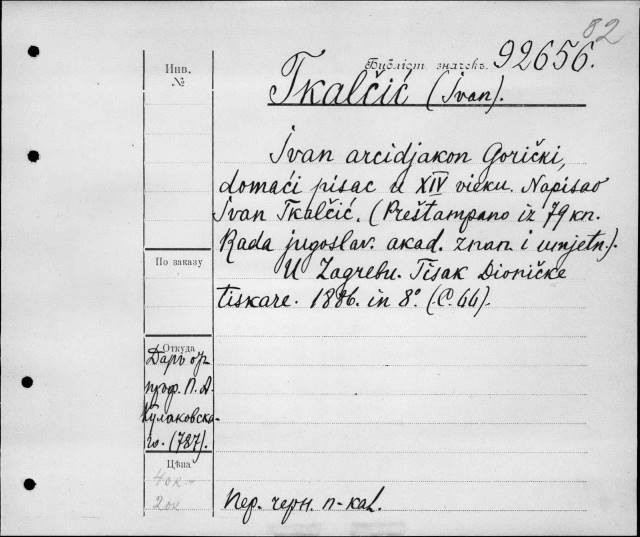 82
Инв.
№
Бублiст значекъ 92656.
Tkalčić (Ivan).
Ivan arcidjakon Gorički,
domaći pisac u XIV vieku. Napisao
Ivan Tkalčić. (Preštampano iz 79 kn.
Rada jugoslav. akad. znan. i umjetn.).
U Zagrebu. Tisak Dioničke
tiskare. 1886. in 8º. (C. 44).
По заказу
Откуда
Даръ отъ
проф. П. А.
Кулаковска-
го. (787).
Цѣна
40к
20к
Пер. черн. п-кал.